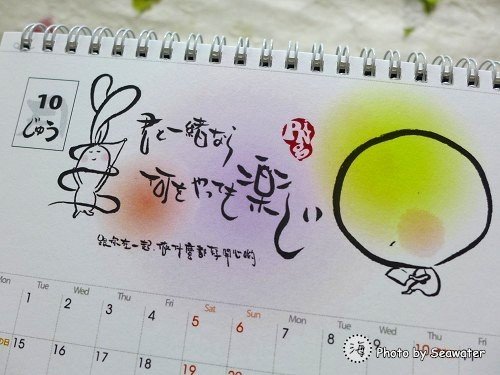 10
じゅう
君と一緒なら
何をやっても楽しい
跟你在一起.做什麼都是開心的
Mon Tue Wed Thu Fri Sat Sun Mon Tue Wed Thu Fri
1 2 3 4 5 6 7 8 9 10
15 16 17 18 19 20
海 Photo by Seawater